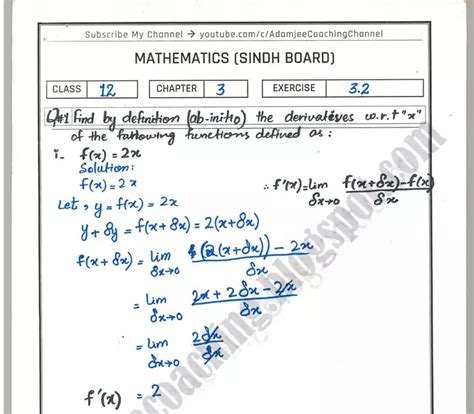 Subscribe My Channel → youtube.com/c/AdamjeeCoachingChannel
MATHEMATICS (SINDH BOARD)
CLASS 12 CHAPTER 3 EXERCISE 3.2
Q#1 Find by definition (ab-initio) the derivatives w.r.t "x"
of the following functions defined as:
i- f(x) = 2x
Solution:
f(x) = 2x
∴ f'(x) = lim δx→0 f(x+δx)-f(x) / δx
Let, y = f(x) = 2x
y + δy = f(x+δx) = 2(x+δx)
f(x+δx) = lim δx→0 (2(x+δx)) - 2x / δx
= lim δx→0 2x + 2δx - 2x / δx
= lim δx→0 2δx / δx
f'(x) = 2
coaching.blogspot.com